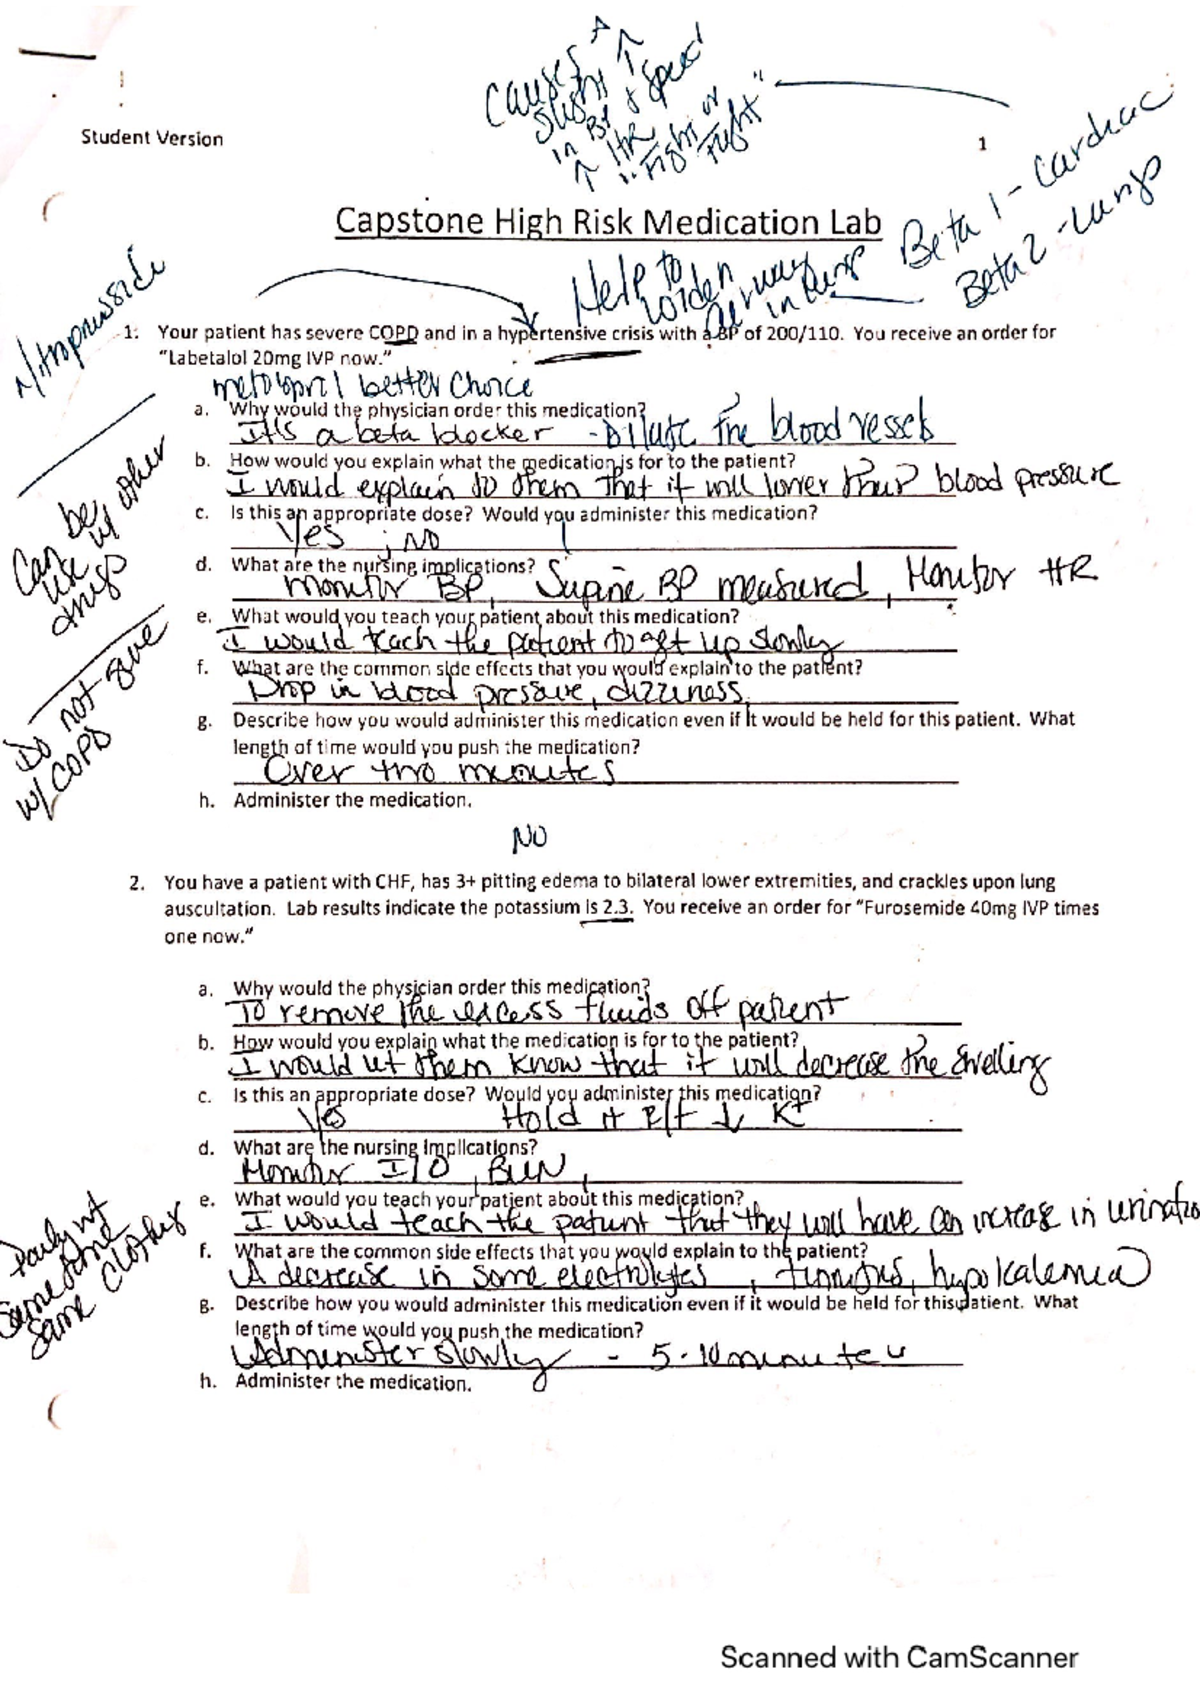 Causes A
slight ↑
in BP & speed
↑ HR
"Fight or
Flight"
Student Version
1
Beta 1 - Cardiac
Beta 2 - Lungs
Capstone High Risk Medication Lab
Help to
widen
airway
in lungs
Nitroprusside
1. Your patient has severe COPD and in a hypertensive crisis with a BP of 200/110. You receive an order for
"Labetalol 20mg IVP now."
metopril better choice
a. Why would the physician order this medication?
It's a beta blocker - Dilate the blood vessels
b. How would you explain what the medication is for to the patient?
I would explain to them that it will lower their blood pressure
c. Is this an appropriate dose? Would you administer this medication?
Yes ; NO
Can be
use w/ other
things
d. What are the nursing implications?
Monitor BP, Supine BP measured, Monitor HR
e. What would you teach your patient about this medication?
I would teach the patient to get up slowly
f. What are the common side effects that you would explain to the patient?
Drop in blood pressure, dizziness
Do not give
w/ COPD
g. Describe how you would administer this medication even if it would be held for this patient. What
length of time would you push the medication?
Over two minutes
h. Administer the medication.
NO
2. You have a patient with CHF, has 3+ pitting edema to bilateral lower extremities, and crackles upon lung
auscultation. Lab results indicate the potassium is 2.3. You receive an order for "Furosemide 40mg IVP times
one now."
a. Why would the physician order this medication?
To remove the excess fluids off patient
b. How would you explain what the medication is for to the patient?
I would let them know that it will decrease the swelling
c. Is this an appropriate dose? Would you administer this medication?
Yes Hold it R/t ↓ K+
d. What are the nursing implications?
Monitor I/O, BUN,
e. What would you teach your patient about this medication?
I would teach the patient that they will have an increase in urination
f. What are the common side effects that you would explain to the patient?
A decrease in some electrolytes, tinnitus, hypokalemia
Daily wt
same time
same clothes
g. Describe how you would administer this medication even if it would be held for this patient. What
length of time would you push the medication?
Administer slowly - 5-10 minutes
h. Administer the medication.
Scanned with CamScanner